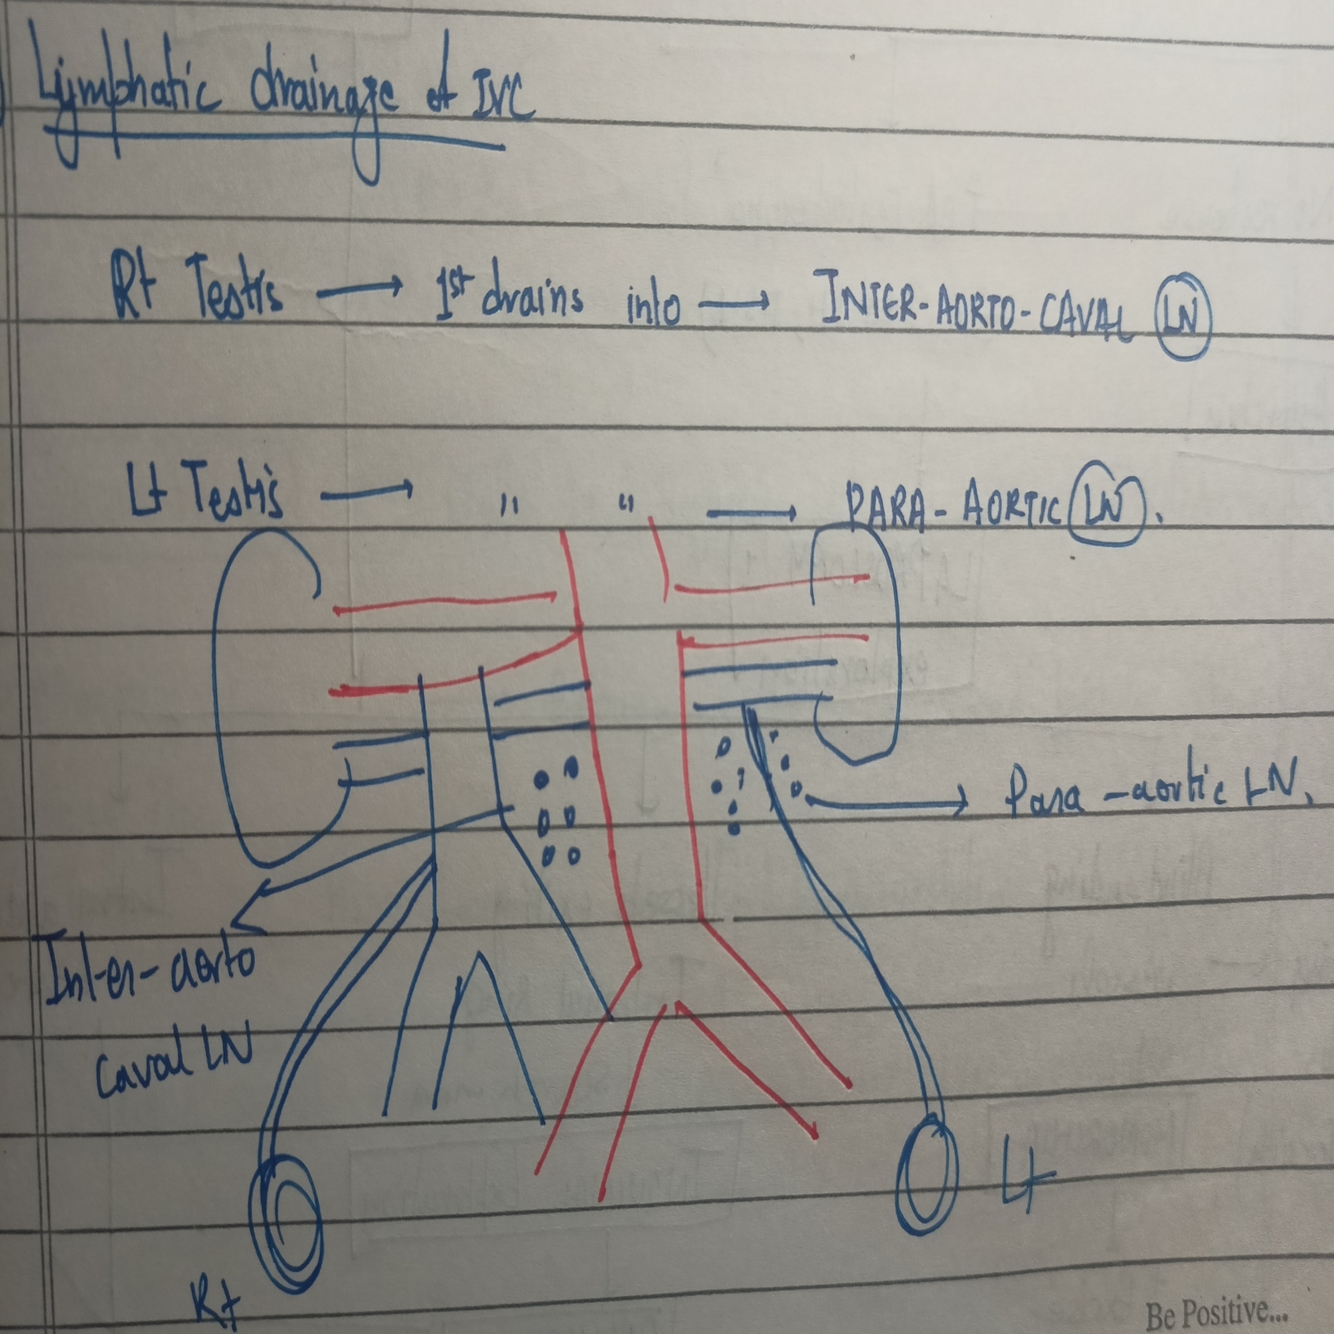 Lymphatic drainage of IVC
Rt Testis → 1st drains into → INTER-AORTO-CAVAL LN
Lt Testis → " " → PARA-AORTIC LN.
Para-aortic LN.
Inter-aorto
caval LN
Lt
Rt
Be Positive...